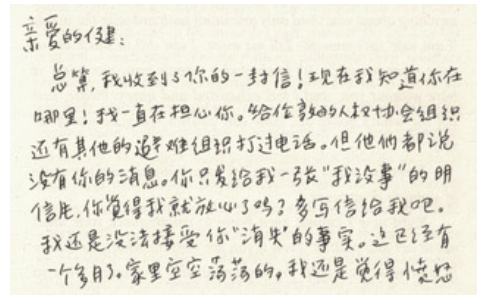 亲爱的健:
总算,我收到了你的一封信!现在我知道你在
哪里!我一直在担心你。给伦敦的人权协会组织
还有其他的避难组织打过电话。但他们都说
没有你的消息。你只发给我一张"我没事"的明
信片,你觉得我就放心了吗?多写信给我吧。
我还是没法接受你"消失"的事实。这已经有
一个多月了。家里空空荡荡的,我还是觉得愤怒